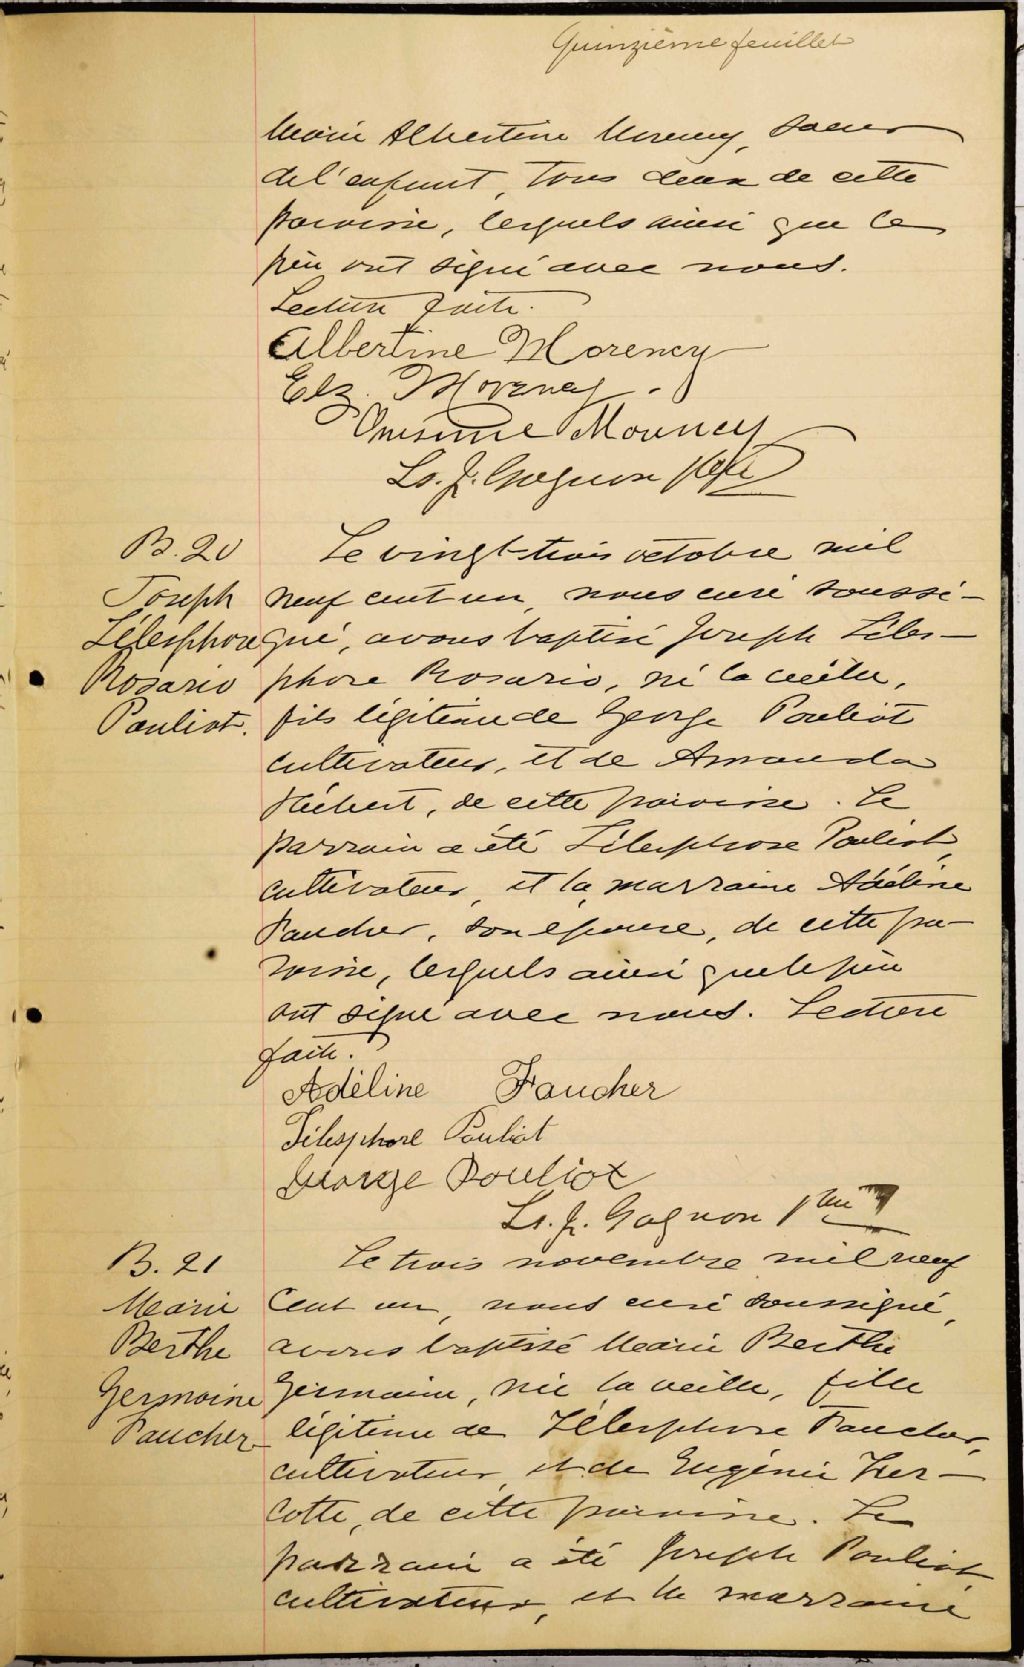 Quinzième feuillet
Marie Albertine Morency, soeur
de l'enfant, tous deux de cette
paroisse, lesquels ainsi que le
père ont signé avec nous.
Lecture faite.
Albertine Morency
Elz. Morency
Onésime Morency
Ls. J. Gagnon ptre
B. 20
Joseph
Télesphore
Rosario
Pouliot.
Le vingt-trois octobre mil
neuf cent un, nous curé soussi-
gné, avons baptisé Joseph Téles-
phore Rosario, né la veille,
fils légitime de George Pouliot
cultivateur, et de Amanda
Hébert, de cette paroisse. Le
parrain a été Télesphore Pouliot,
cultivateur, et la marraine Adéline
Faucher, son épouse, de cette pa-
roisse, lesquels ainsi que le père
ont signé avec nous. Lecture
faite.
Adéline Faucher
Télesphore Pouliot
George Pouliot
Ls. J. Gagnon ptre
B. 21
Marie
Berthe
Germaine
Faucher
Le trois novembre mil neuf
cent un, nous curé soussigné,
avons baptisé Marie Berthe
Germaine, née la veille, fille
légitime de Télesphore Faucher,
cultivateur, et de Eugénie Tur-
cotte, de cette paroisse. Le
parrain a été Joseph Pouliot,
cultivateur, et la marraine